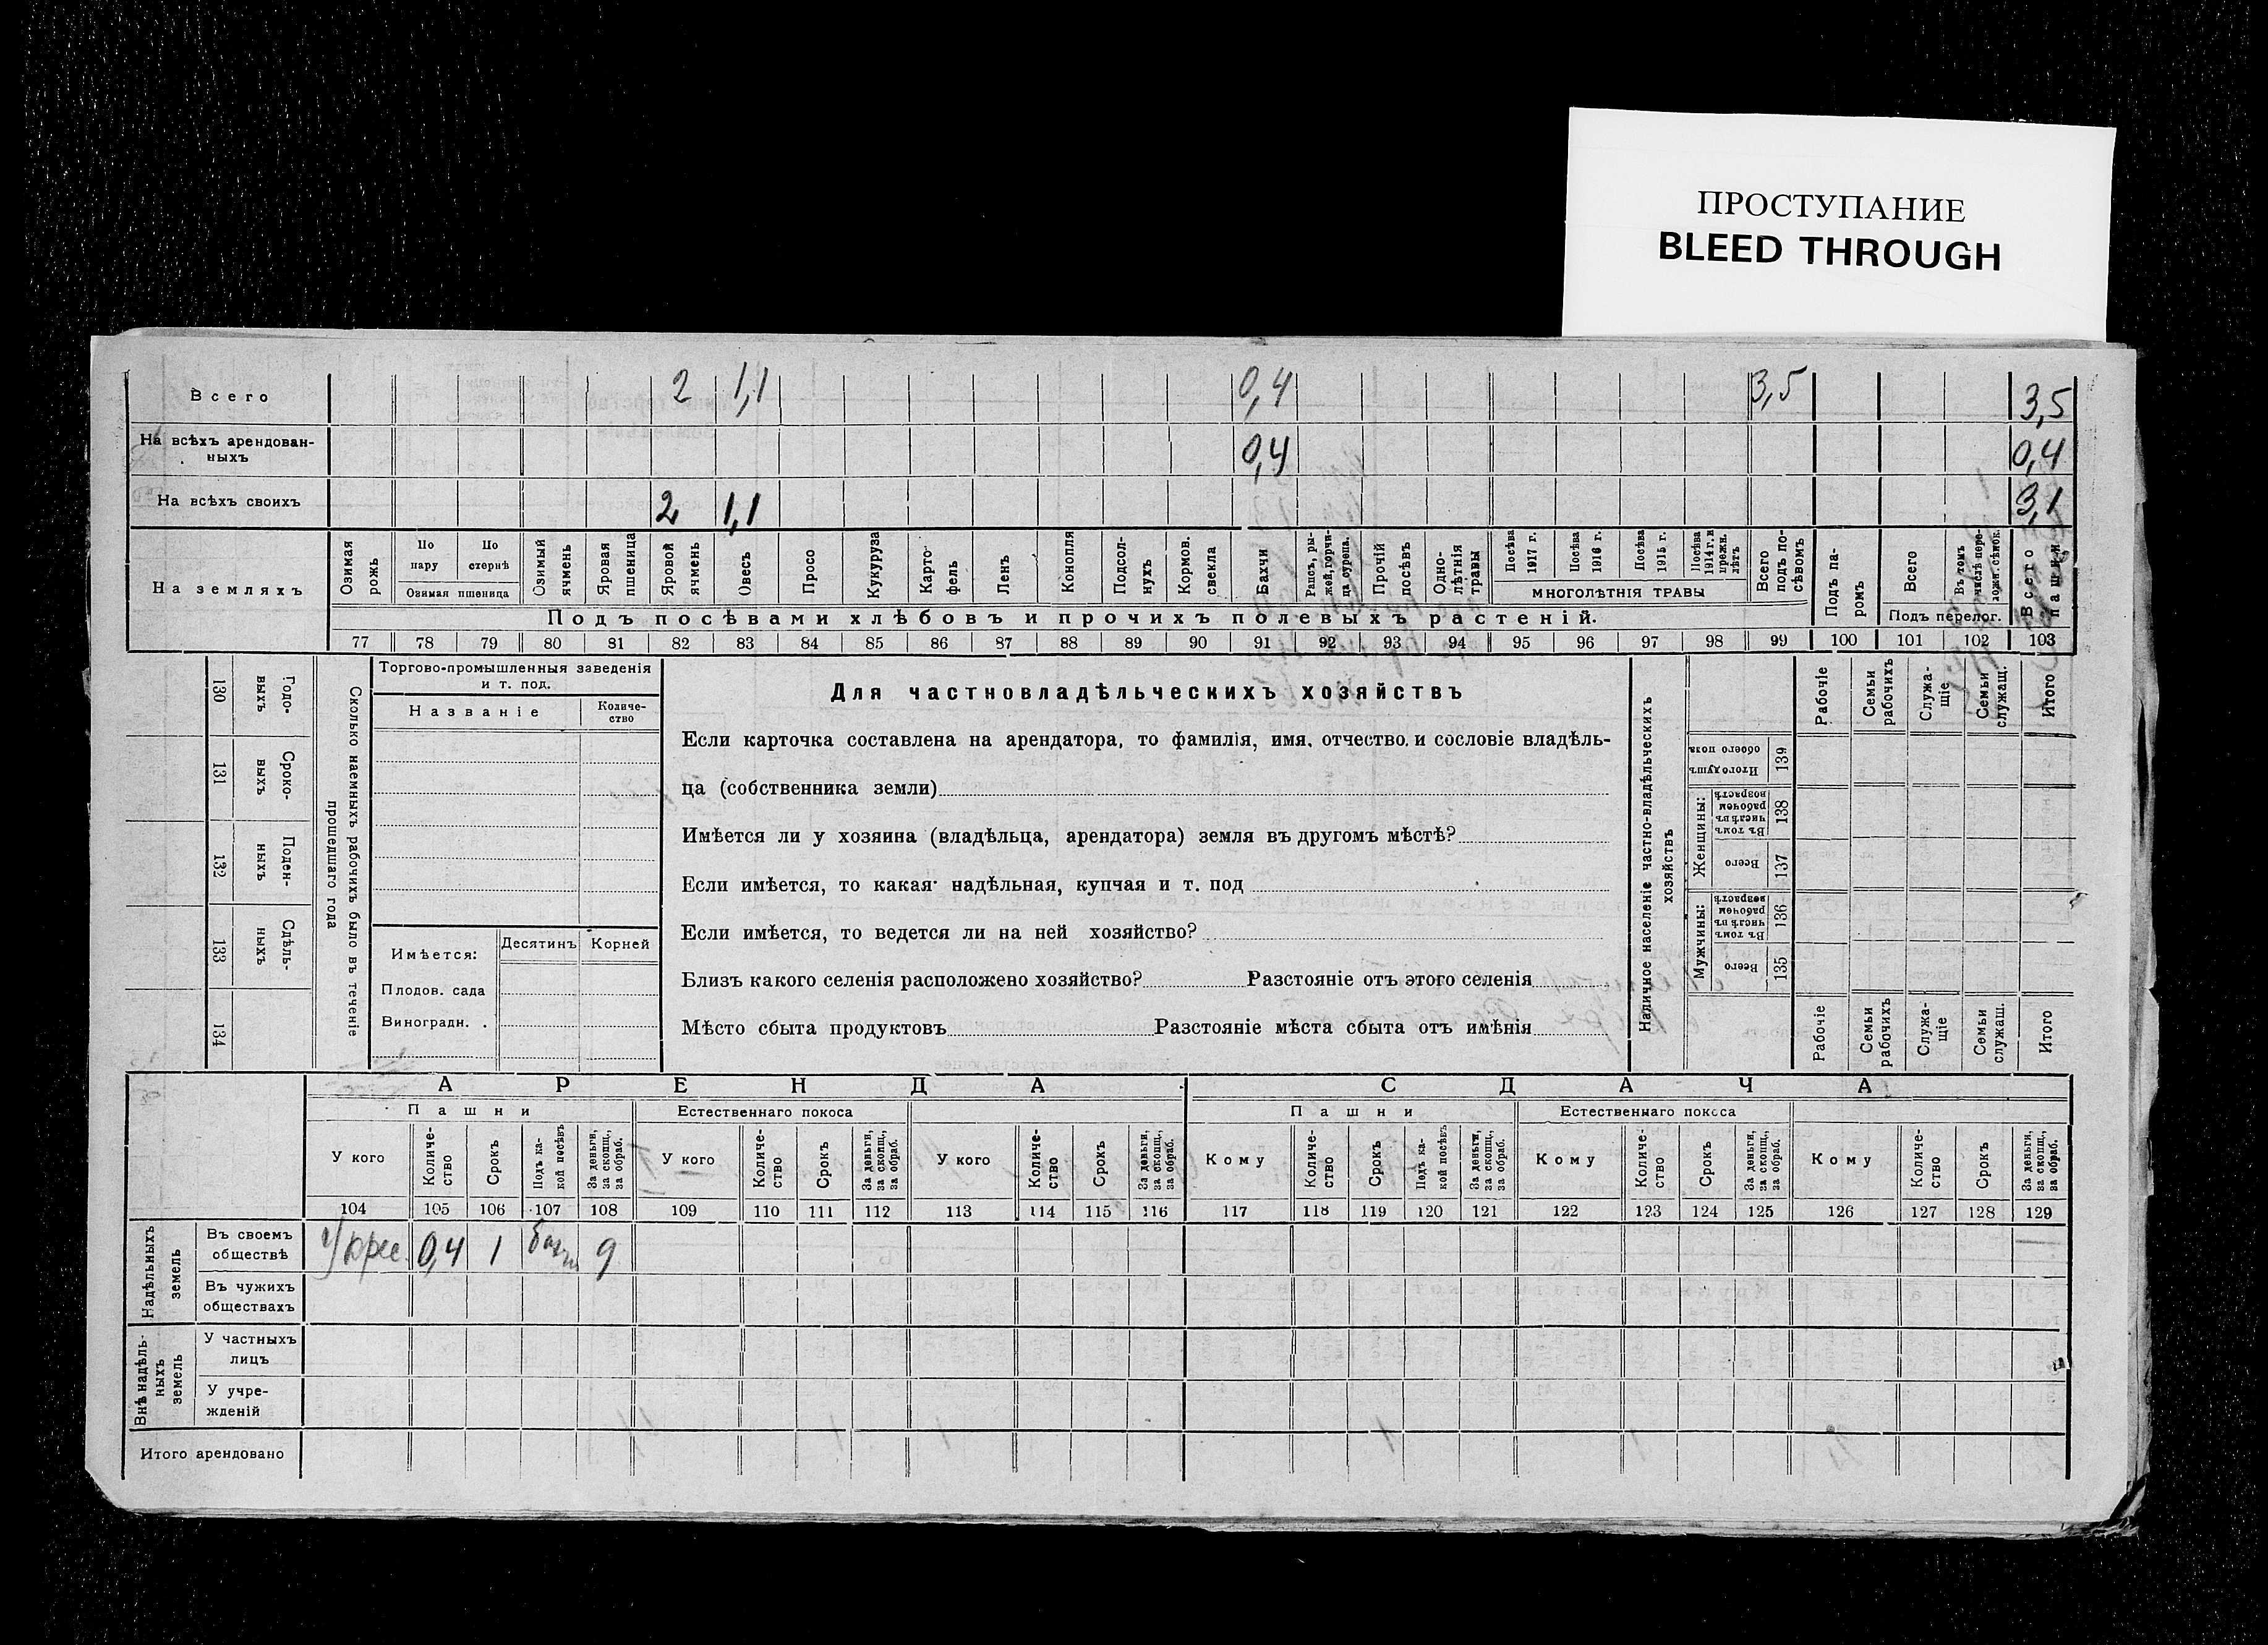 ПРОСТУПАНИЕ
BLEED THROUGH
Всего 2 1,1 0,4 3,5 3,5
На всѣхъ арендован-
ныхъ 0,4 0,4
На всѣхъ своихъ 2 1,1 3,1
На земляхъ
Озимая рожь
По пару
По стернѣ
Озимая пшеница
Озимый ячмень
Яровая пшеница
Яровой ячмень
Овесъ
Просо
Кукуруза
Карто-
фель
Ленъ
Конопля
Подсол-
нухъ
Кормов. свекла
Бахчи
Рапсъ, ры-
жей, горчи-
ца сурепа.
Прочій посѣвъ
Одно-
лѣтнія травы
Посѣва 1917 г.
Посѣва 1916 г.
Посѣва 1915 г.
Посѣва 1914 г. и прежн. лѣтъ
МНОГОЛѢТНІЯ ТРАВЫ
Всего подъ по-
сѣвомъ
Подъ па-
ромъ
Всего
Въ томъ числѣ пере-
ложн. сѣнок.
Подъ перелог.
Всего пашни
Подъ посѣвами хлѣбовъ и прочихъ полевыхъ растеній.
77 78 79 80 81 82 83 84 85 86 87 88 89 90 91 92 93 94 95 96 97 98 99 100 101 102 103
130 Годо-
выхъ
131 Сроко-
выхъ
132 Поден-
ныхъ
133 Сдѣль-
ныхъ
134
Сколько наемныхъ рабочихъ было въ теченіе
прошедшаго года
Торгово-промышленныя заведенія
и т. под.
Названіе
Количе-
ство
Имѣется:
Десятинъ Корней
Плодов. сада
Виноградн. .
Для частновладѣльческихъ хозяйствъ
Если карточка составлена на арендатора, то фамилія, имя, отчество, и сословіе владѣль-
ца (собственника земли)
Имѣется ли у хозяина (владѣльца, арендатора) земля въ другомъ мѣстѣ?
Если имѣется, то какая· надѣльная, купчая и т. под
Если имѣется, то ведется ли на ней хозяйство?
Близъ какого селенія расположено хозяйство? Разстояніе отъ этого селенія
Мѣсто сбыта продуктовъ Разстояніе мѣста сбыта отъ имѣнія
Наличное населеніе частно-владѣльческихъ
хозяйствъ
Рабочіе
Семьи рабочихъ
Служа-
щіе
Семьи служащ.
Итого
Итого душъ обоего пола 139
Женщины:
Въ томъ числѣ въ рабочемъ возрастѣ 138
Всего 137
Мужчины:
Въ томъ числѣ въ рабочемъ возрастѣ 136
Всего 135
Рабочіе
Семьи рабочихъ
Служа-
щіе
Семьи служащ.
Итого
АРЕНДА
СДАЧА
Пашни
Естественнаго покоса
Пашни
Естественнаго покоса
У кого
Количе-
ство
Срокъ
Подъ ка-
кой посѣвъ
За деньги, за скопщ., за обраб.
У кого
Количе-
ство
Срокъ
За деньги, за скопщ., за обраб.
У кого
Количе-
ство
Срокъ
За деньги, за скопщ., за обраб.
Кому
Количе-
ство
Срокъ
Подъ ка-
кой посѣвъ
За деньги, за скопщ., за обраб.
Кому
Количе-
ство
Срокъ
За деньги, за скопщ., за обраб.
Кому
Количе-
ство
Срокъ
За деньги, за скопщ., за обраб.
104 105 106 107 108 109 110 111 112 113 114 115 116 117 118 119 120 121 122 123 124 125 126 127 128 129
Надѣльныхъ
земель
Въ своемъ
обществѣ
0,4 1 9
Въ чужихъ
обществахъ
Внѣ надѣль-
ныхъ
земель
У частныхъ
лицъ
У учре-
жденій
Итого арендовано